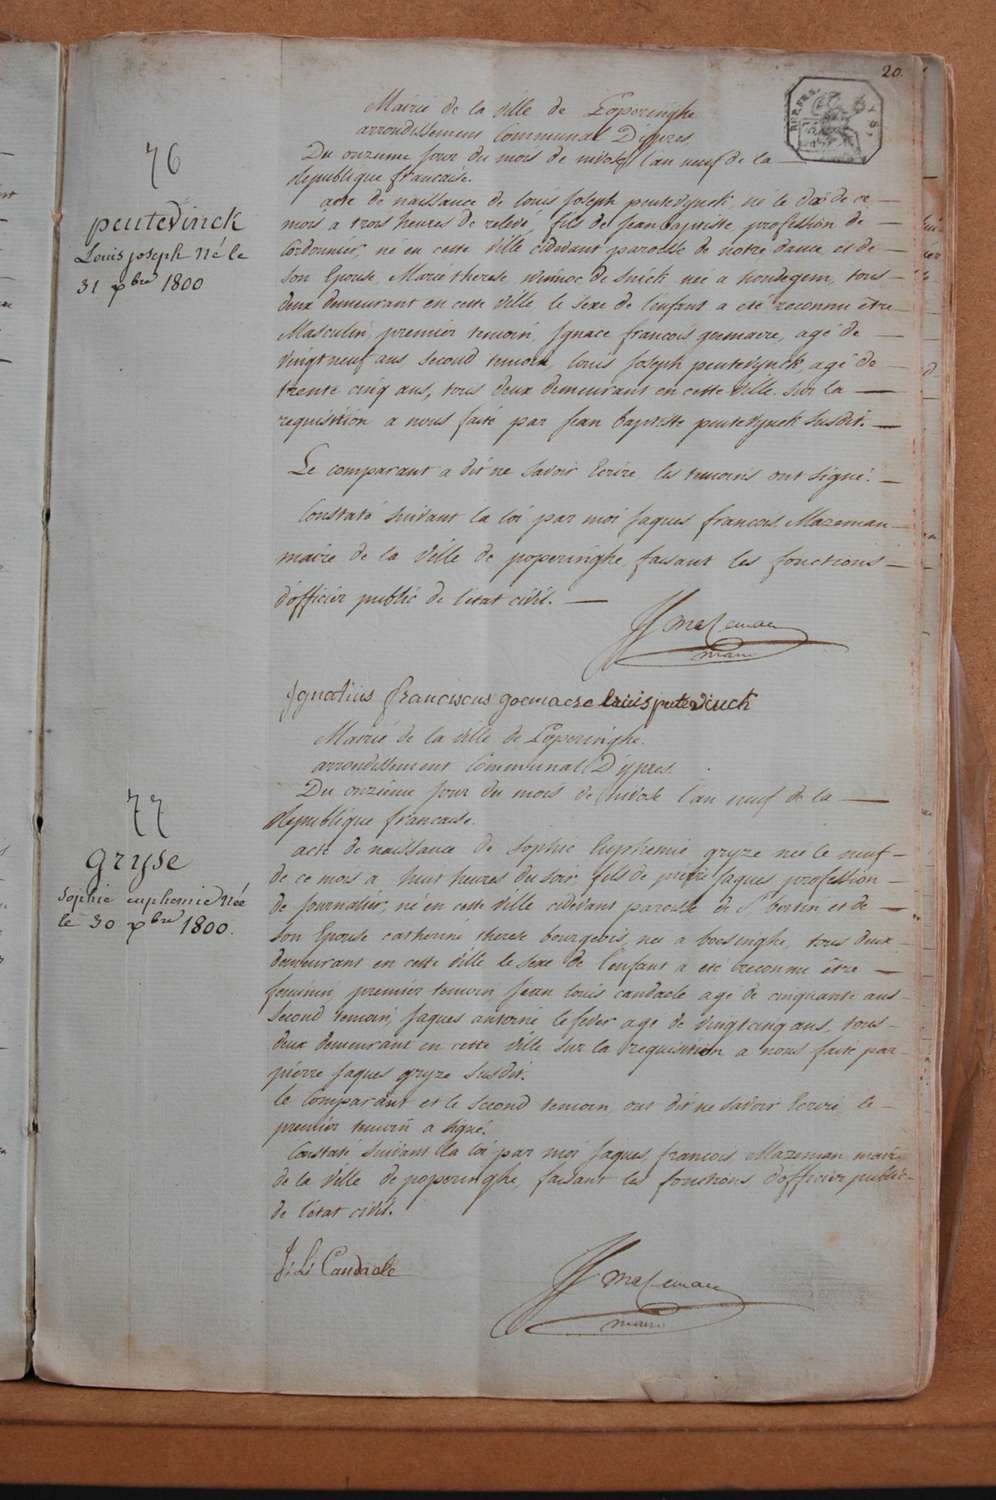 20.
REP. FRA.
76
peutevinck
Louis joseph Né le
31 xbre 1800
Mairie de la ville de Poperinghe
arrondissement Communal D'ijpres
Du onzieme jour du mois de nivose l'an neuf de la
Republique francaise.
acte de naissance de louis Joseph peutevynck, né le dix de ce
mois a trois heures de relevé, fils de Jean baptiste profession de
Cordonnier, né en cette ville cidevant paroisse de notre dame et de
Son Epouse, Marie therese, winnoc de Snick née a hondegem, tous
deux demeurant en cette ville, le sexe de l'enfant a eté reconnu être
Masculin, premier temoin, Ignace francois gomaere, agé de
vingt neuf ans second temoin, louis Joseph peutevynck, agé de
trente cinq ans, tous deux demeurant en cette ville. Sur la
requisition a nous faite par Jean baptiste peutevynck susdit.
Le comparant a dit ne savoir Ecrire, les temoins ont signé.
Constaté suivant la loi par moi Jaques francois Mazeman
maire de la ville de poperinghe, faisant les fonctions
d'officier public de l'etat civil.
JJ Mazeman
maire
Ignatius franciscus gomaere louis peutevinck
77
gryse
Sophie euphemie Née
le 30 xbre 1800.
Mairie de la ville de Poperinghe.
arrondissement Communal D'ijpres.
Du onzieme jour du mois de nivose l'an neuf de la
Republique francaise.
acte de naissance de Sophie Euphemie gryze nee le neuf
de ce mois a huit heures du soir, fils de pierre Jaques profession
de Journalier, né en cette ville cidevant paroisse de St bertin et de
Son Epouse catherine therese bourgeois, nee a boesinghe, tous deux
demeurant en cette ville le sexe de l'enfant a eté reconnu être
feminin, premier temoin Jean louis candaele agé de cinquante ans
Second temoin, Jaques antoine lefever agé de vingt cinq ans, tous
deux demeurant en cette ville sur la requisition a nous faite par
pierre Jaques gryze susdit.
le Comparant et le second temoin, ont dit ne savoir Ecrire, le
premier temoin a signé.
Constaté suivant la loi par moi Jaques francois Mazeman maire
de la ville de poperinghe, faisant les fonctions d'officier public
de l'etat civil.
J: L: Candaele
JJ Mazeman
maire